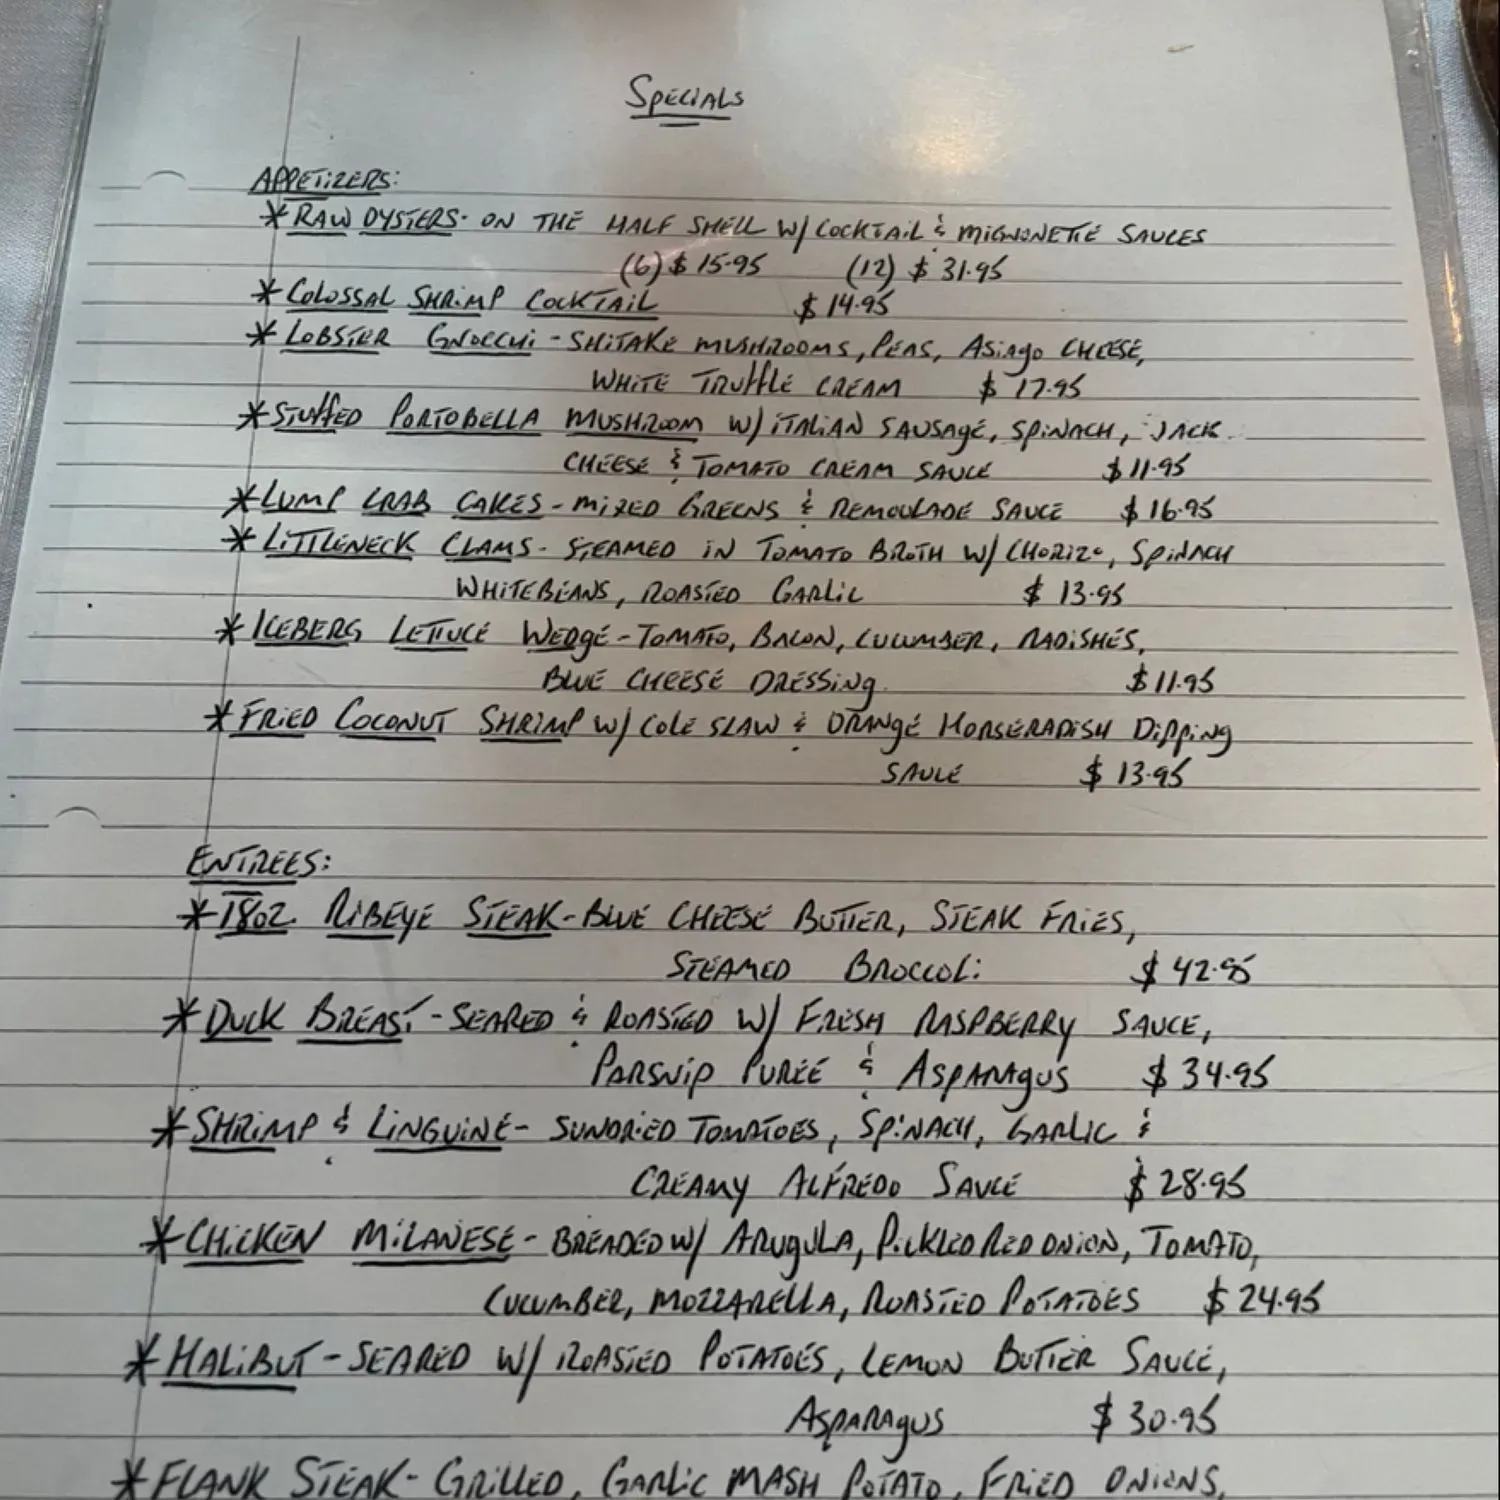 SPECIALS
APPETIZERS:
* RAW OYSTERS - ON THE HALF SHELL W/ COCKTAIL & MIGNONETTE SAUCES
(6) $15.95 (12) $31.95
* COLOSSAL SHRIMP COCKTAIL $14.95
* LOBSTER GNOCCHI - SHITAKE MUSHROOMS, PEAS, ASiAgo CHEESE,
WHITE TRUffLE CREAM $17.95
* STUffED PORTOBELLA MUSHROOM W/ ITALIAN SAUSAGE, SPINACH, JACK
CHEESE & TOMATO CREAM SAUCE $11.95
* LUMP CRAB CAKES - MIXED GREENS & REMOULADE SAUCE $16.95
* LITTLENECK CLAMS - STEAMED IN TOMATO BROTH W/ CHORIZO, SPINACH
WHITEBEANS, ROASTED GARLIC $13.95
* ICEBERG LETTUCE WEDGE - TOMATO, BACON, CUCUMBER, RADISHES,
BLUE CHEESE DRESSING $11.95
* FRIED COCONUT SHRIMP W/ COLE SLAW & ORANGE HORSERADISH DIPPING
SAUCE $13.95
ENTREES:
* 18OZ. RIBEYE STEAK - BLUE CHEESE BUTTER, STEAK FRIES,
STEAMED BROCCOLI $42.95
* DUCK BREAST - SEARED & ROASTED W/ FRESH RASPBERRY SAUCE,
PARSNIP PUREE & ASPARAGUS $34.95
* SHRIMP & LINGUINE - SUNDRIED TOMATOES, SPINACH, GARLIC &
CREAMY ALFREDO SAUCE $28.95
* CHICKEN MILANESE - BREADED W/ ARUGULA, PICKLED RED ONION, TOMATO,
CUCUMBER, MOZZARELLA, ROASTED POTATOES $24.95
* HALIBUT - SEARED W/ ROASTED POTATOES, LEMON BUTTER SAUCE,
ASPARAGUS $30.95
* FLANK STEAK - GRILLED, GARLIC MASH POTATO, FRIED ONIONS,